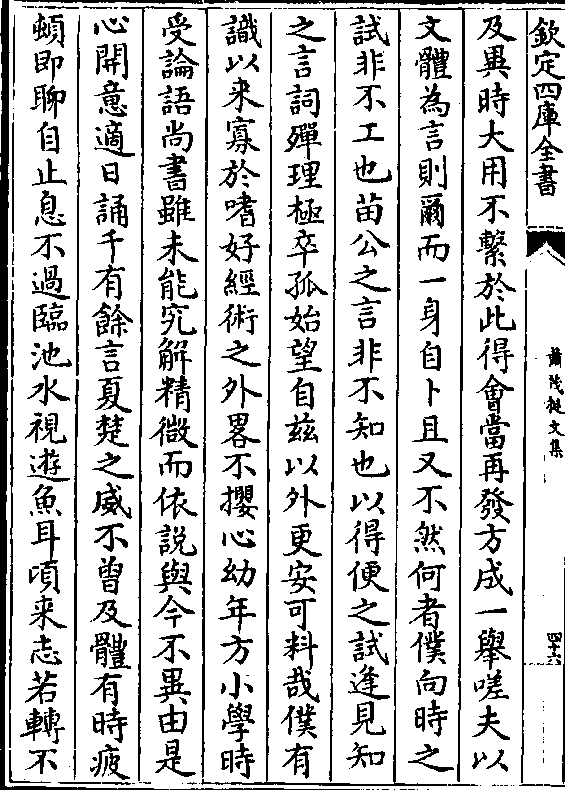 欽定四庫全書
蕭茂挺文集
四十六
及異時大用不繫於此得會當再發方成一舉嗟夫以
文體為言則爾而一身自卜且又不然何者僕向時之
試非不工也苗公之言非不知也以得便之試逢見知
之言詞殫理極卒孤始望自茲以外更安可料哉僕有
識以来寡於嗜好經術之外畧不攖心幼年方小學時
受論語尚書雖未能究解精微而依說與今不異由是
心開意適日誦千有餘言夏楚之威不曽及體有時疲
頓即聊自止息不過臨池水視遊魚耳頃来志若轉不